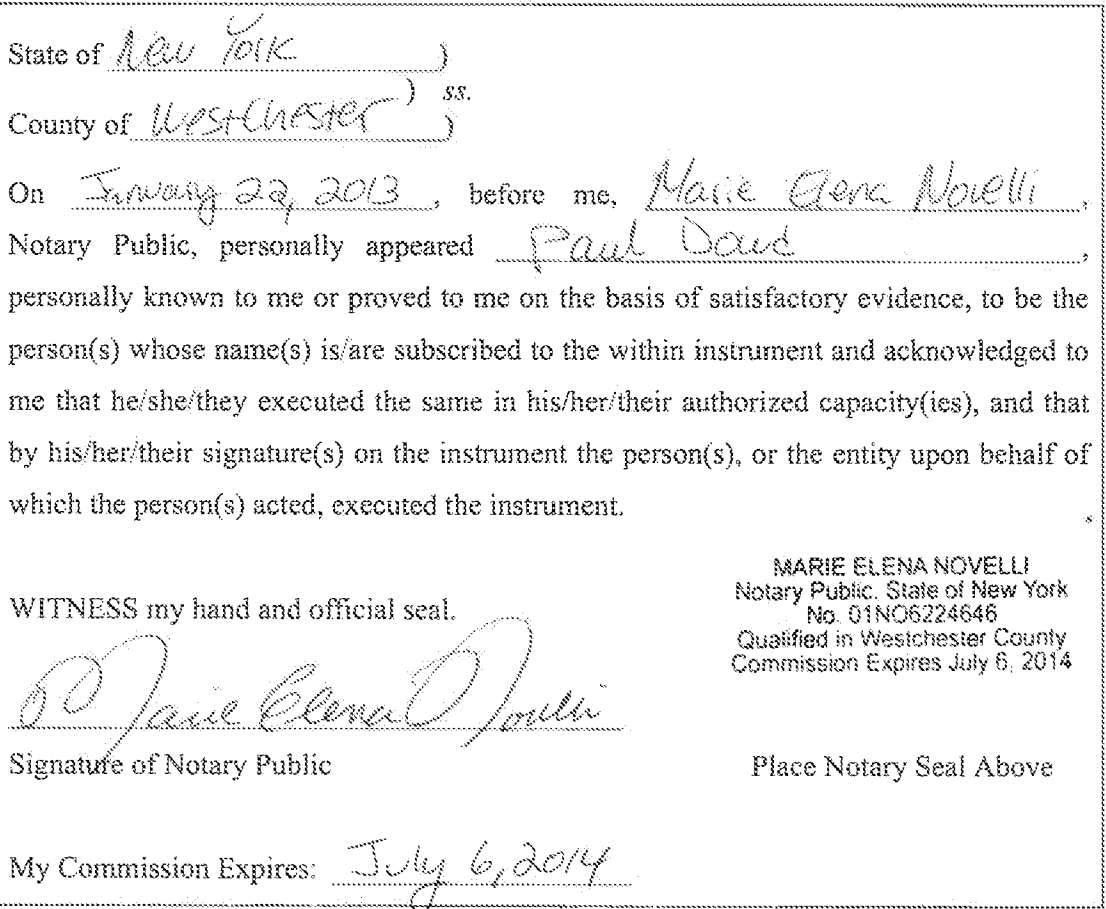 State of New York )
) ss.
County of Westchester )
On January 22, 2013, before me, Marie Elena Novelli,
Notary Public, personally appeared Paul Dowd,
personally known to me or proved to me on the basis of satisfactory evidence, to be the
person(s) whose name(s) is/are subscribed to the within instrument and acknowledged to
me that he/she/they executed the same in his/her/their authorized capacity(ies), and that
by his/her/their signature(s) on the instrument the person(s), or the entity upon behalf of
which the person(s) acted, executed the instrument.
MARIE ELENA NOVELLI
Notary Public, State of New York
No. 01NO6224646
Qualified in Westchester County
Commission Expires July 6, 2014
WITNESS my hand and official seal.
Marie Elena Novelli
Signature of Notary Public
Place Notary Seal Above
My Commission Expires: July 6, 2014